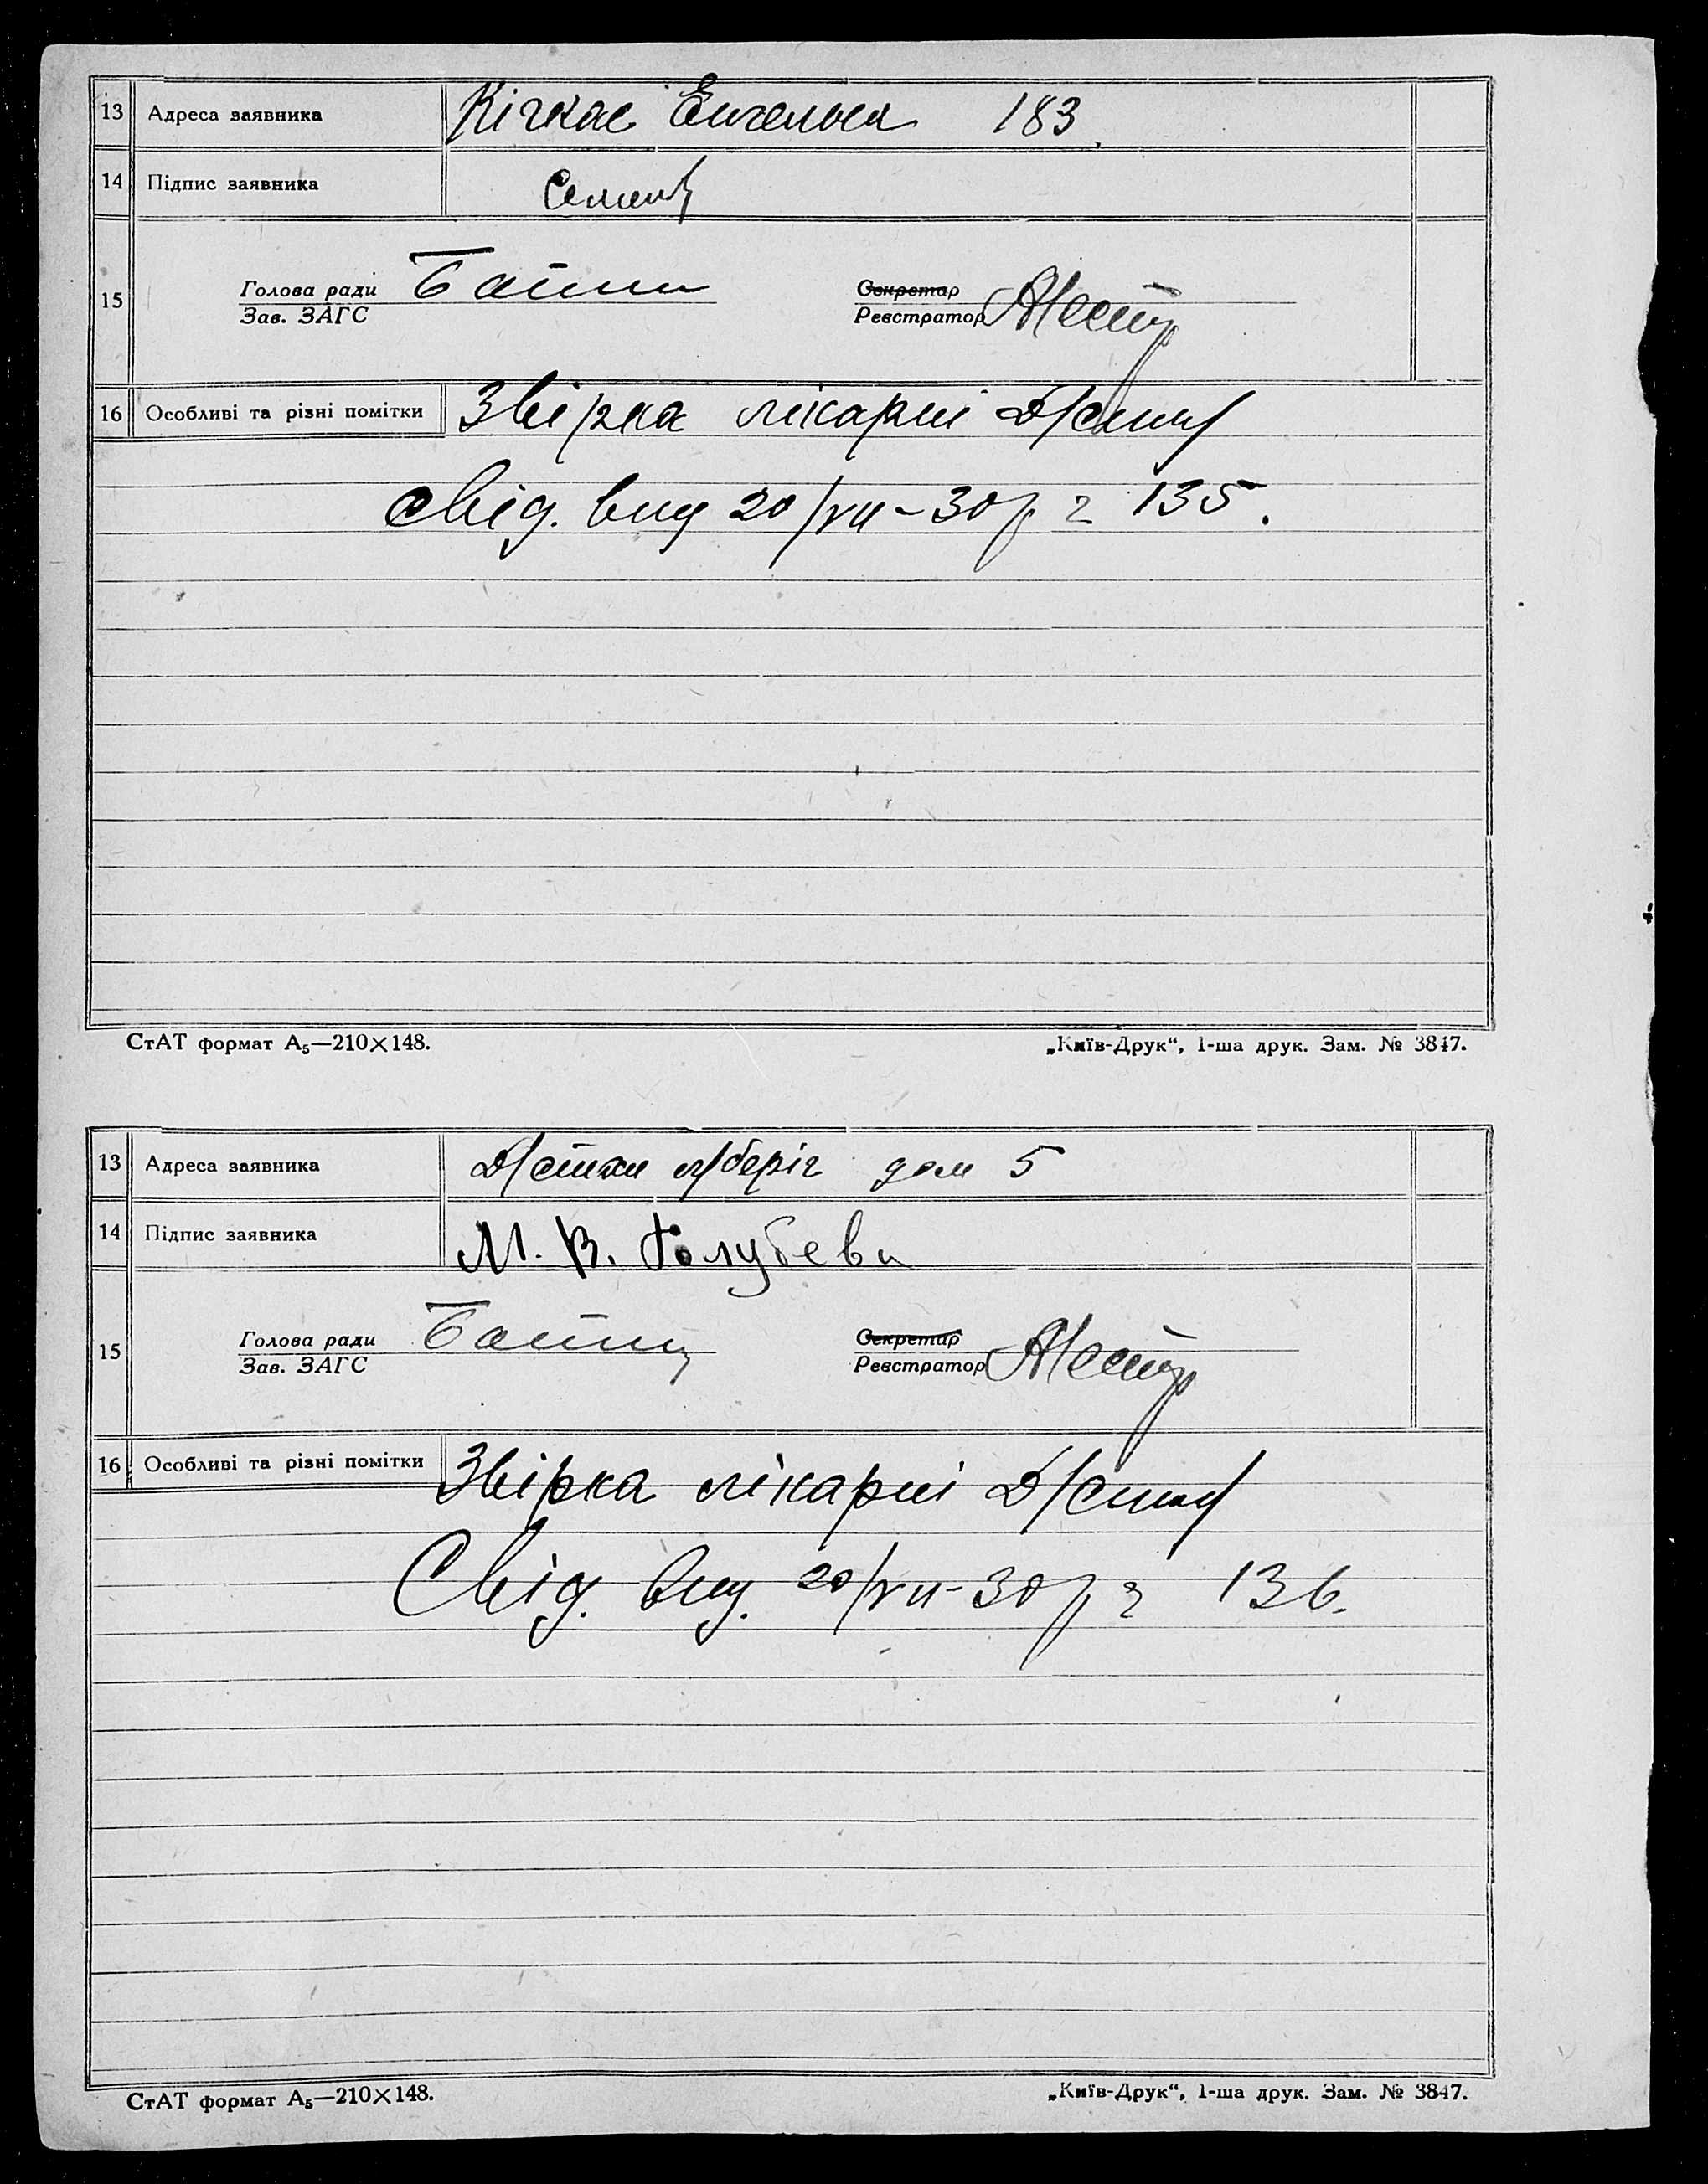 13 Адреса заявника Кічкас Енгельса 183
14 Підпис заявника
15 Голова ради Секретар
Зав. ЗАГС Реєстратор
16 Особливі та різні помітки Звірка лікарні
свід. вид 20/VII-30р. 135.
СтАТ формат А₅—210×148. „Київ-Друк“, 1-ша друк. Зам. № 3847.
13 Адреса заявника беріг дом 5
14 Підпис заявника М. В. Голубева
15 Голова ради Секретар
Зав. ЗАГС Реєстратор
16 Особливі та різні помітки Звірка лікарні
Свід. вид. 20/VII-30р. 136.
СтАТ формат А₅—210×148. „Київ-Друк“, 1-ша друк. Зам. № 3847.